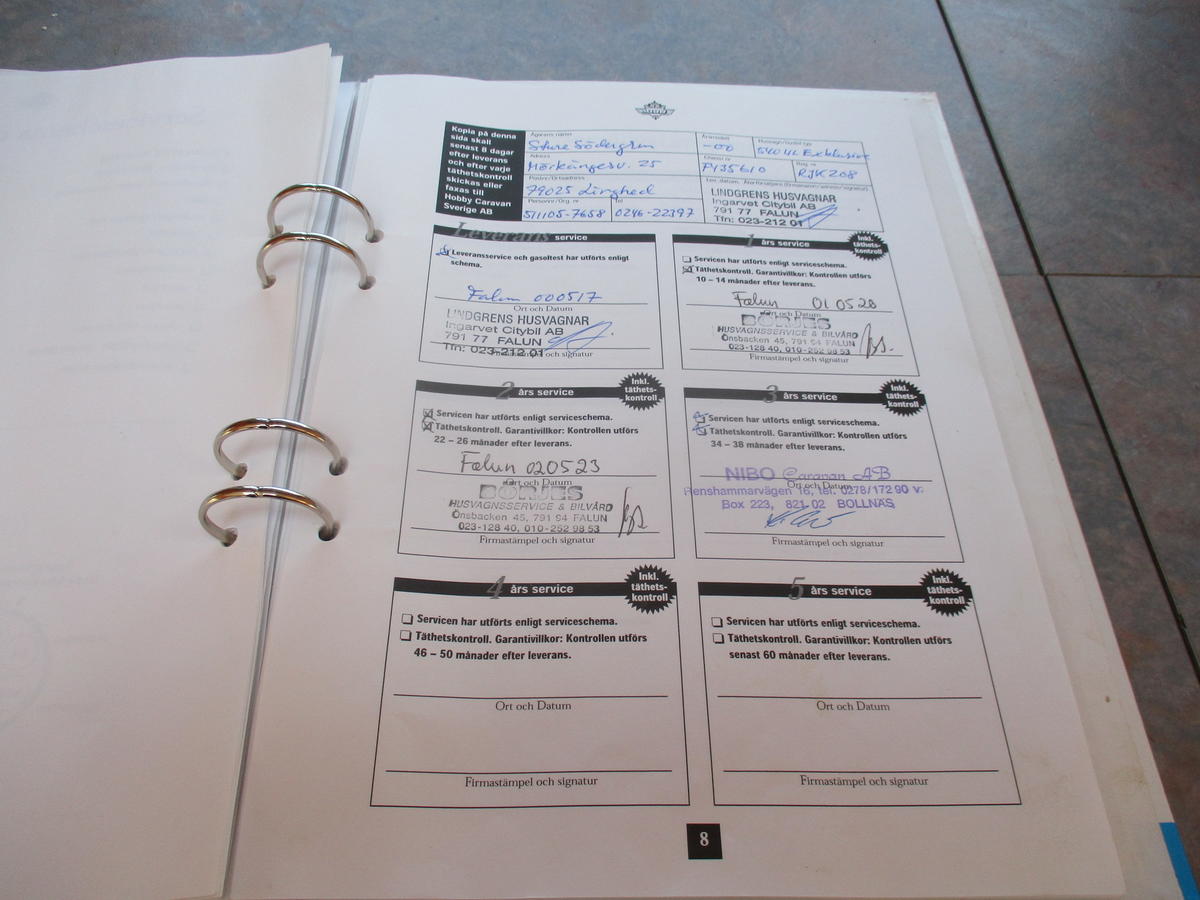 Kopia på denna
sida skall
senast 8 dagar
efter leverans
och efter varje
täthetskontroll
skickas eller
faxas till
Hobby Caravan
Sverige AB
Ägarens namn
Sture Södergren
Årsmodell
-00
540 UL Exklusive
Adress
Mörkängesv. 25
Chassi nr
Reg. nr
RJK 208
Postnr/Ortsadress
79025 Linghed
Personnr/Org. nr
511105-7658
Tel
0246-22397
LINDGRENS HUSVAGNAR
Ingarvet Citybil AB
791 77 FALUN
Tfn: 023-212 01
Leverans service
Leveransservice och gasoltest har utförts enligt
schema.
Falun 000517
Ort och Datum
LINDGRENS HUSVAGNAR
Ingarvet Citybil AB
791 77 FALUN
Tfn: 023-212 01
Firmastämpel och signatur
1 års service
Inkl.
täthets-
kontroll
Servicen har utförts enligt serviceschema.
Täthetskontroll. Garantivillkor: Kontrollen utförs
10 – 14 månader efter leverans.
Falun 010528
Ort och Datum
BÖRJES
HUSVAGNSSERVICE & BILVÅRD
Önsbacken 45, 791 94 FALUN
023-128 40, 010-252 98 53
Firmastämpel och signatur
2 års service
Inkl.
täthets-
kontroll
Servicen har utförts enligt serviceschema.
Täthetskontroll. Garantivillkor: Kontrollen utförs
22 – 26 månader efter leverans.
Falun 020523
Ort och Datum
BÖRJES
HUSVAGNSSERVICE & BILVÅRD
Önsbacken 45, 791 94 FALUN
023-128 40, 010-252 98 53
Firmastämpel och signatur
3 års service
Inkl.
täthets-
kontroll
Servicen har utförts enligt serviceschema.
Täthetskontroll. Garantivillkor: Kontrollen utförs
34 – 38 månader efter leverans.
NIBO Caravan AB
Ort och Datum
Renshammarvägen 16, tel. 0278/172 90 v.
Box 223, 821 02 BOLLNÄS
Firmastämpel och signatur
4 års service
Inkl.
täthets-
kontroll
Servicen har utförts enligt serviceschema.
Täthetskontroll. Garantivillkor: Kontrollen utförs
46 – 50 månader efter leverans.
Ort och Datum
Firmastämpel och signatur
5 års service
Inkl.
täthets-
kontroll
Servicen har utförts enligt serviceschema.
Täthetskontroll. Garantivillkor: Kontrollen utförs
senast 60 månader efter leverans.
Ort och Datum
Firmastämpel och signatur
8